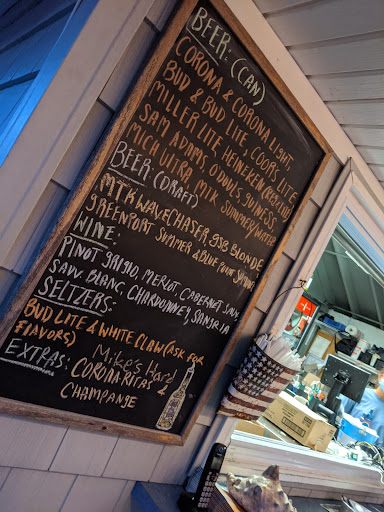 BEER: (CAN)
CORONA & CORONA LIGHT
BUD & BUD LITE, COORS LITE
MILLER LITE, HEINEKEN (REG & LITE)
SAM ADAMS, O'DOULS, GUINESS,
MICH ULTRA, MTK SUMMER/WATER
BEER (DRAFT)
MTK WAVECHASER, GSB BLONDE
GREENPORT SUMMER & BLUE POINT SUMMER
WINE:
PINOT GRIGIO, MERLOT, CABERNET SAUV.
SAUV. BLANC, CHARDONNEY, SANGRIA
SELTZERS:
BUD LITE & WHITE CLAW (ASK FOR
FLAVORS)
EXTRAS: Mike's Hard
CORONARITAS &
CHAMPANGE